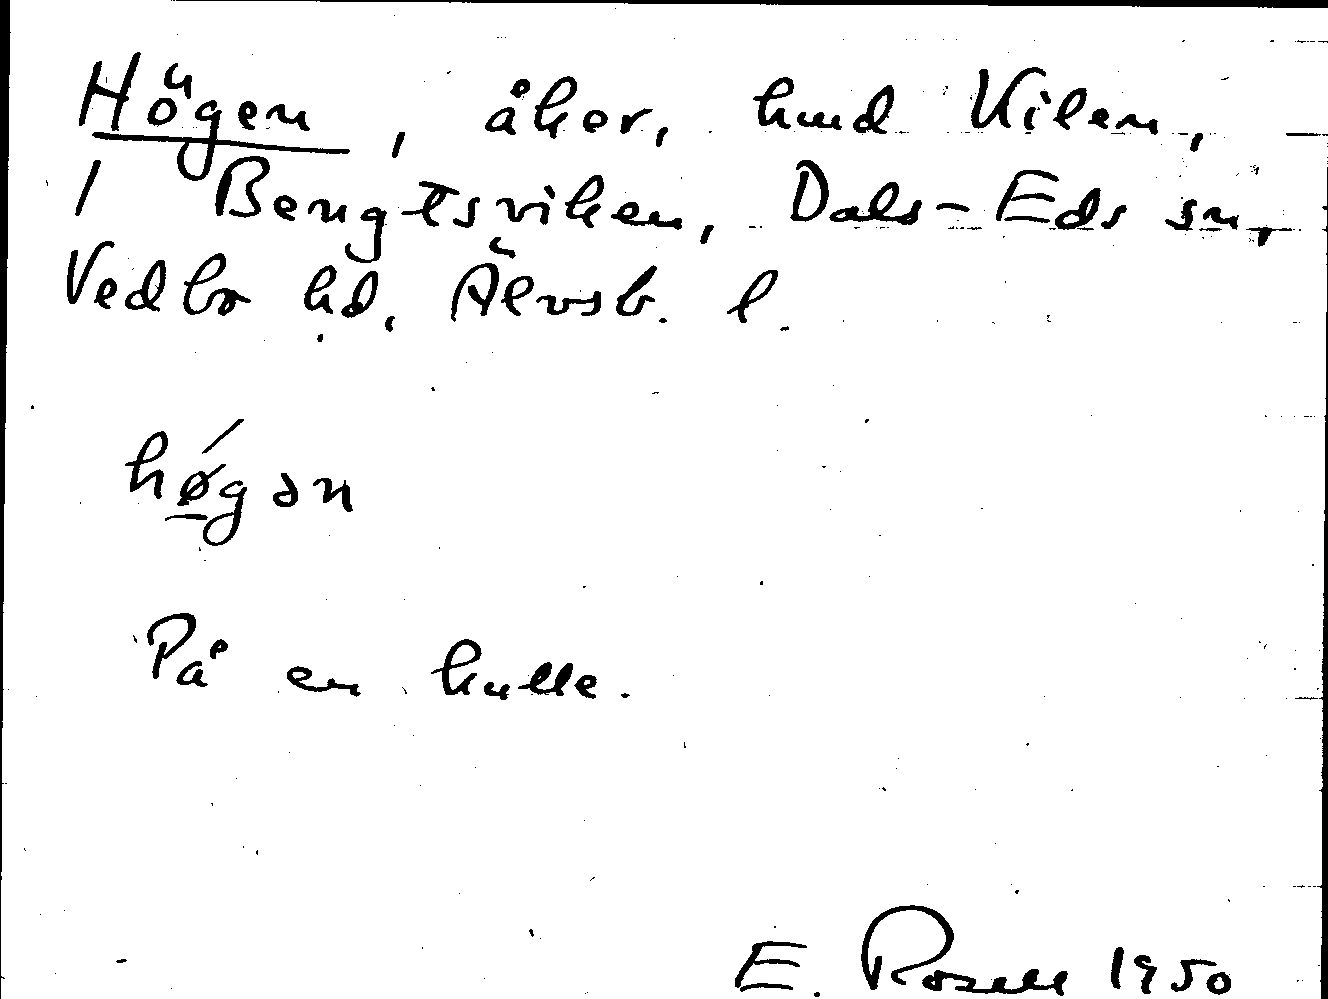 Högen, åker, hmd Kilen,
1 Bengtsviken, Dals-Eds sn,
Vedbo hd. Älvsb. l.
hǿgən
På en kulle.
E. Rosell 1950